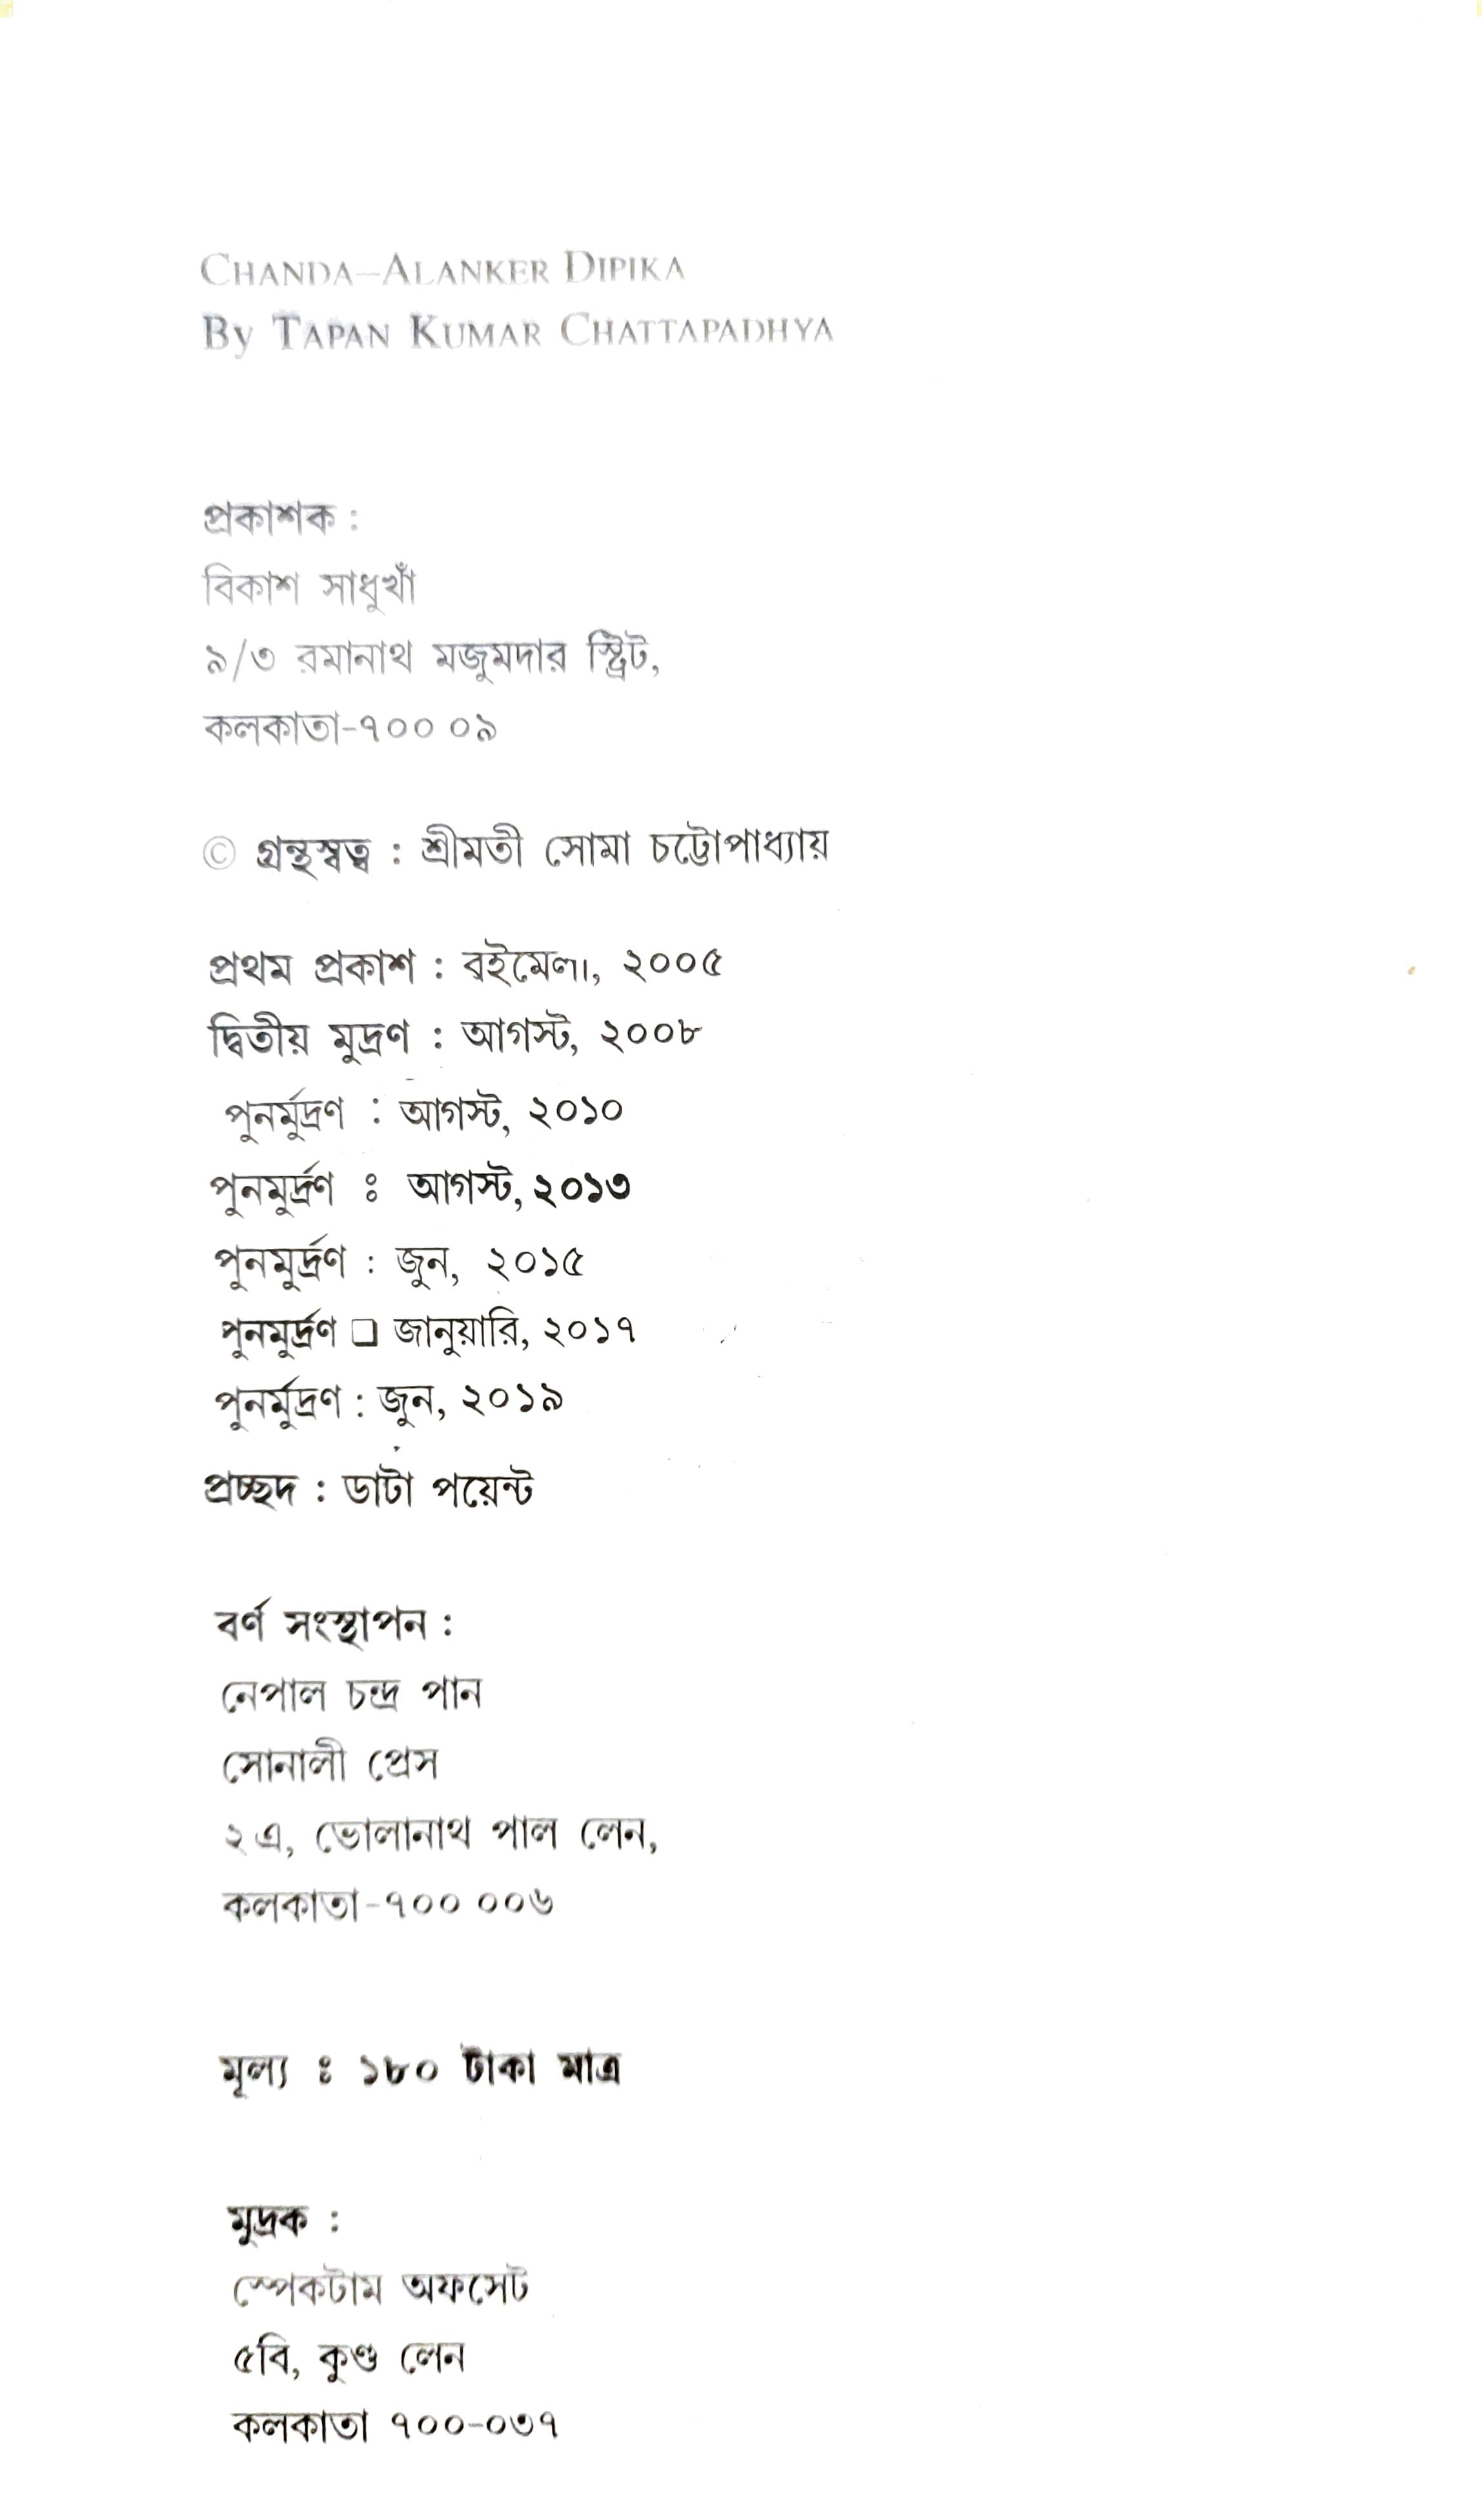 CHANDA—ALANKER DIPIKA
By TAPAN KUMAR CHATTAPADHYA
প্রকাশক :
বিকাশ সাধুখাঁ
৯/৩ রমানাথ মজুমদার স্ট্রিট,
কলকাতা-৭০০ ০৯
© গ্রন্থস্বত্ব : শ্রীমতী সোমা চট্টোপাধ্যায়
প্রথম প্রকাশ : বইমেলা, ২০০৫
দ্বিতীয় মুদ্রণ : আগস্ট, ২০০৮
পুনর্মুদ্রণ : আগস্ট, ২০১০
পুনমুর্দ্রণ ঃ আগস্ট, ২০১৩
পুনমুর্দ্রণ : জুন, ২০১৫
পুনমুর্দ্রণ □ জানুয়ারি, ২০১৭
পুনর্মুদ্রণ : জুন, ২০১৯
প্রচ্ছদ : ডাটা পয়েন্ট
বর্ণ সংস্থাপন :
নেপাল চন্দ্র পান
সোনালী প্রেস
২এ, ভোলানাথ পাল লেন,
কলকাতা-৭০০ ০০৬
মূল্য ঃ ১৮০ টাকা মাত্র
মুদ্রক :
স্পেকটাম অফসেট
৫বি, কুণ্ডু লেন
কলকাতা ৭০০-০৩৭